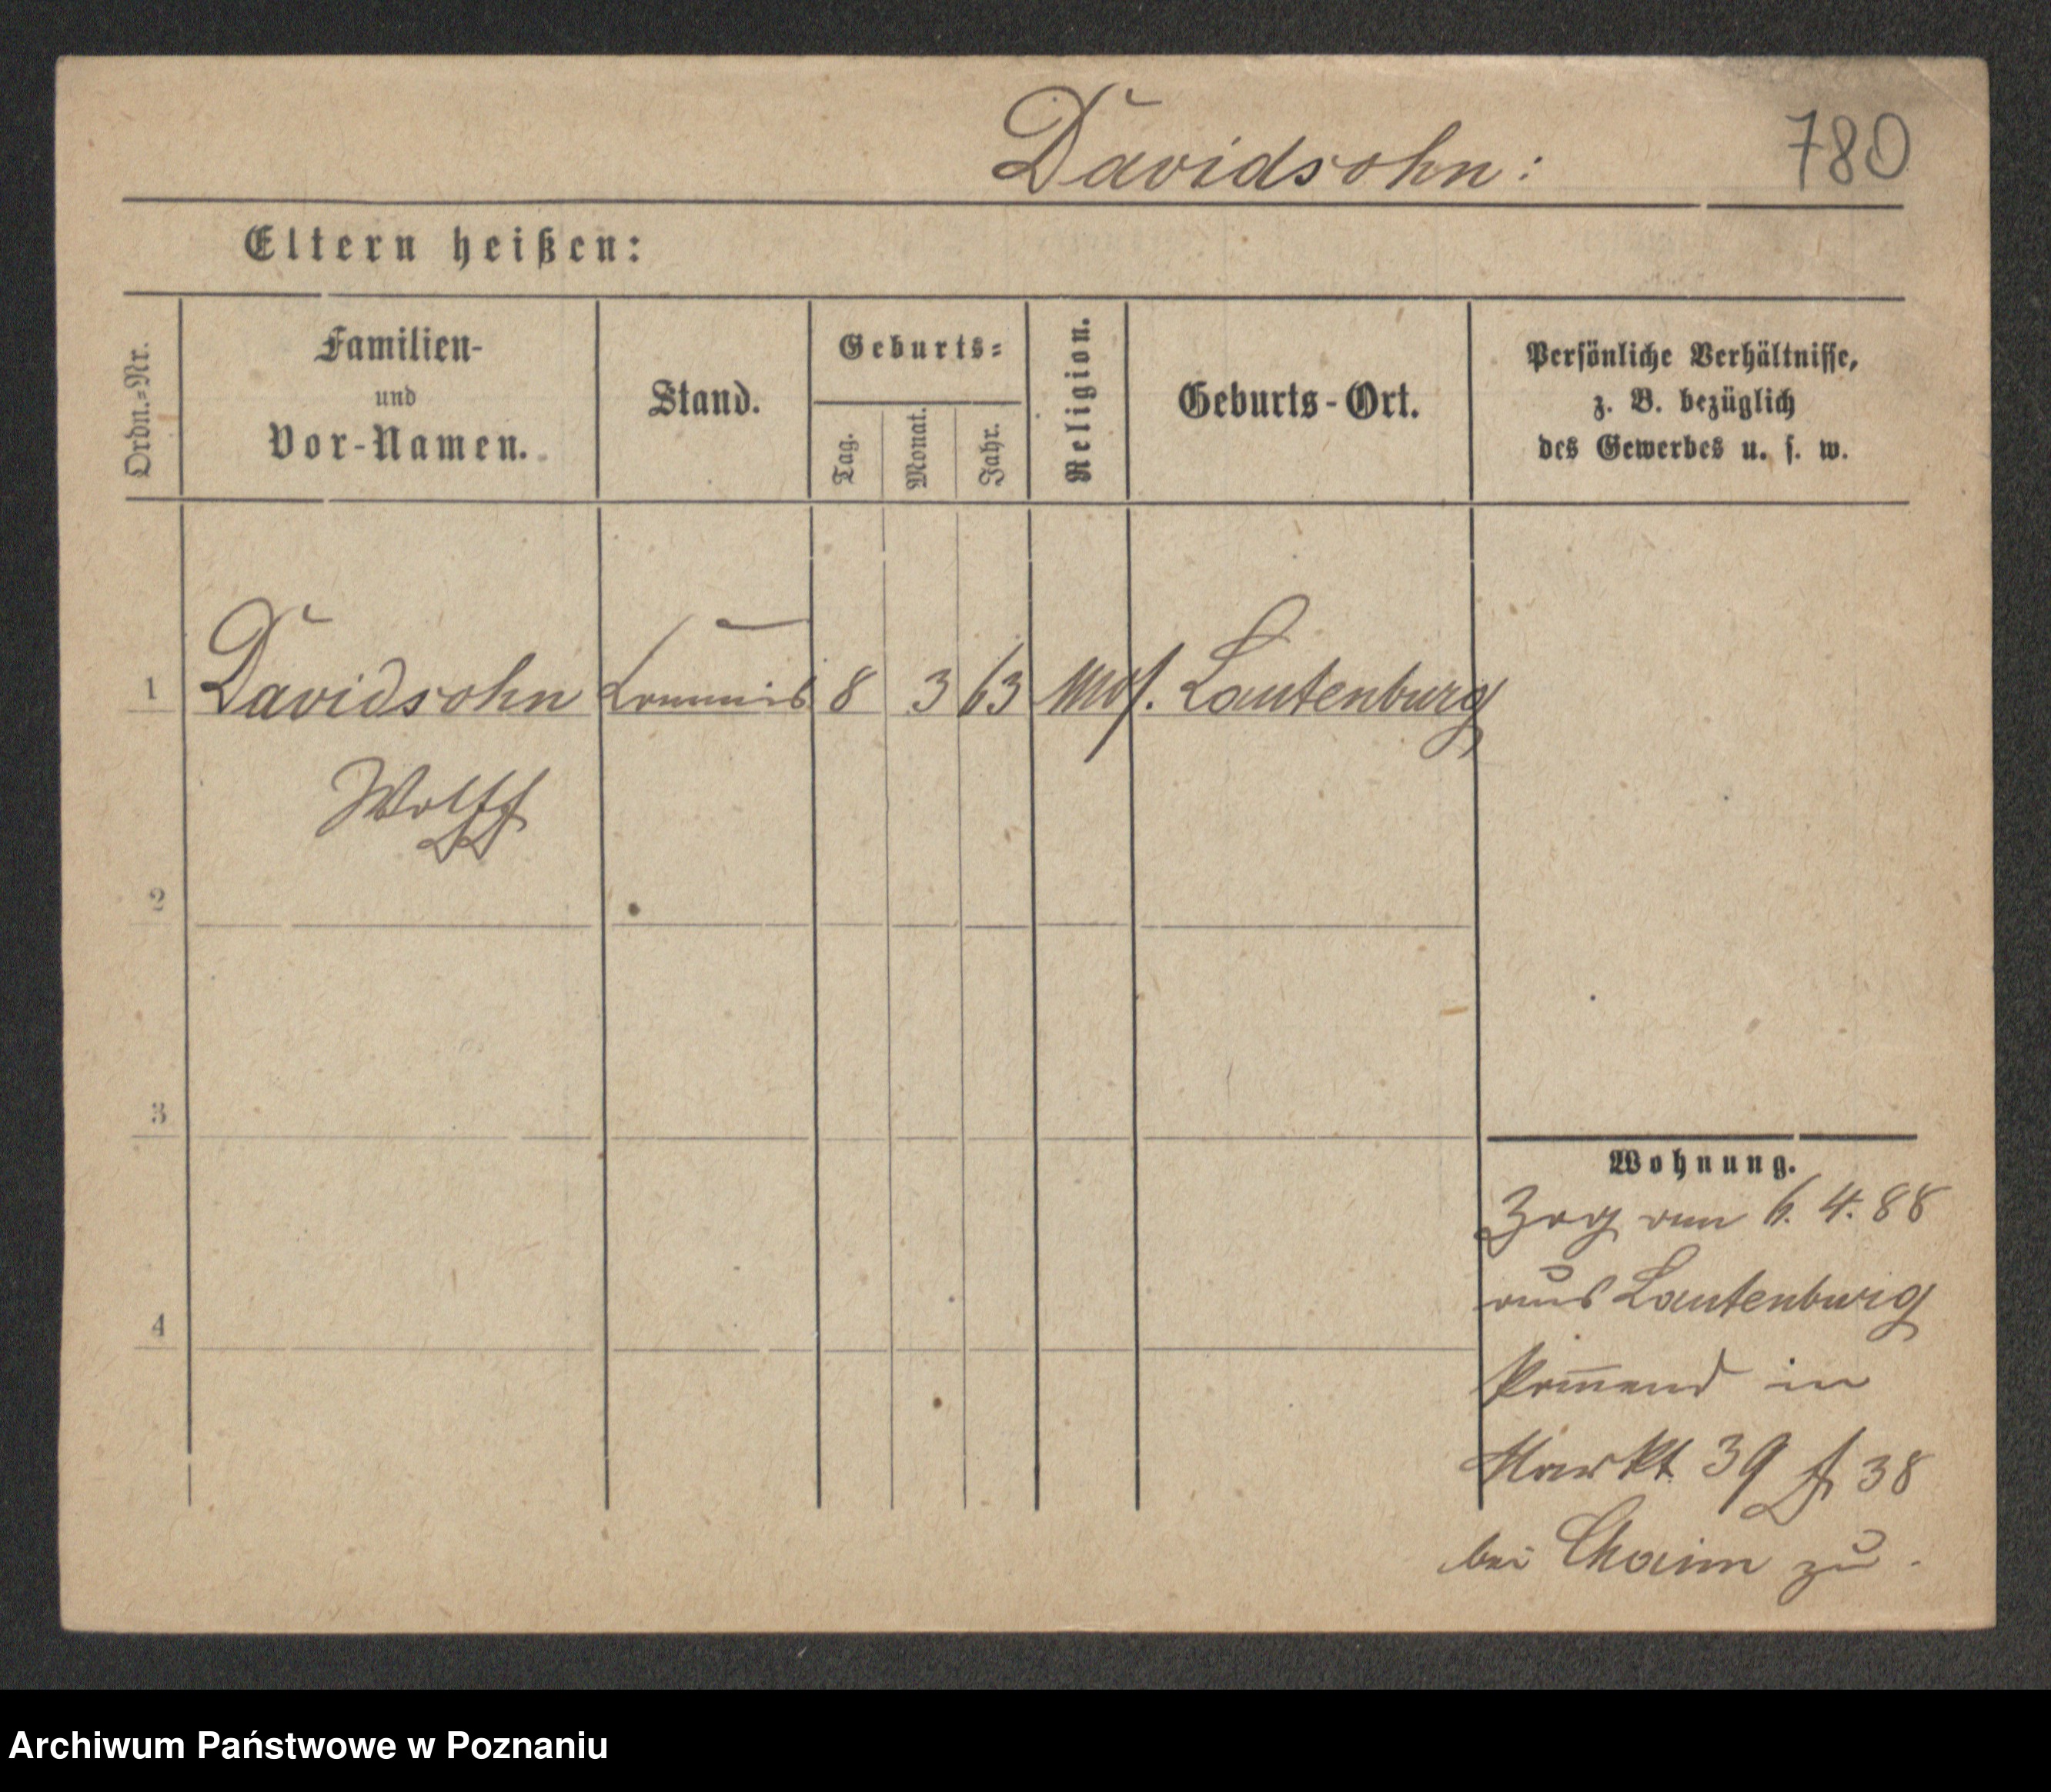 Davidsohn: 780
Eltern heißen:
Ordn.-Nr.
Familien-
und
Vor-Namen.
Stand.
Geburts-
Tag.
Monat.
Jahr.
Religion.
Geburts-Ort.
Persönliche Verhältnisse,
z. B. bezüglich
des Gewerbes u. s. w.
1 Davidsohn Commis 8 3 63 mos. Lautenburg
Wolff
2
3
4
Wohnung.
Zog am 6. 4. 88
aus Lautenburg
kom̅end in
Markt 39 38
bei Chaim zu.
Archiwum Państwowe w Poznaniu